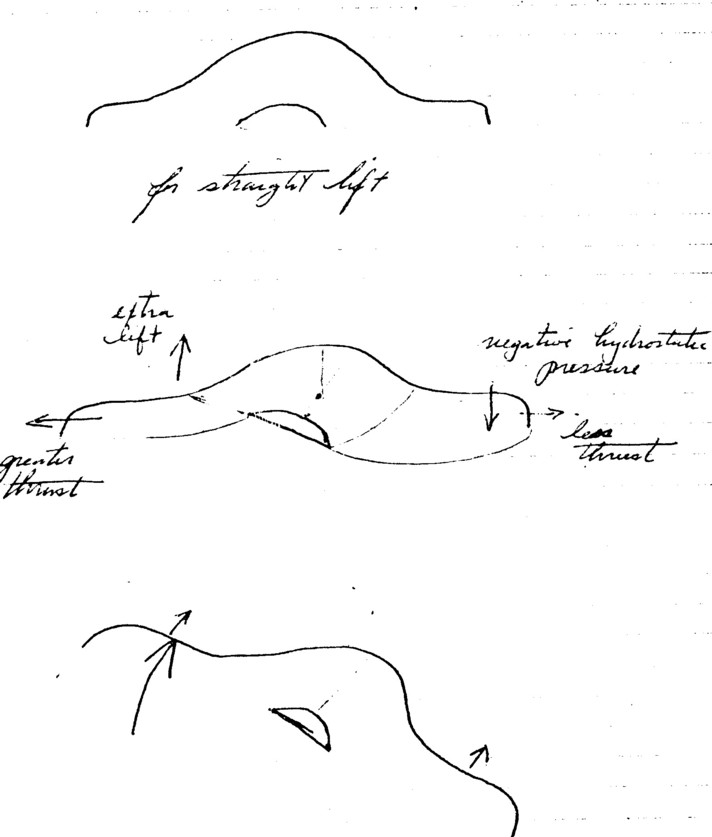 for straight lift
extra
lift
negative hydrostatic
pressure
less
thrust
greater
thrust